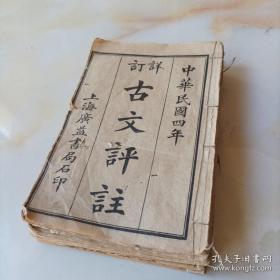 中華民國四年
詳訂
古文評註
上海廣益書局石印
孔夫子旧书网